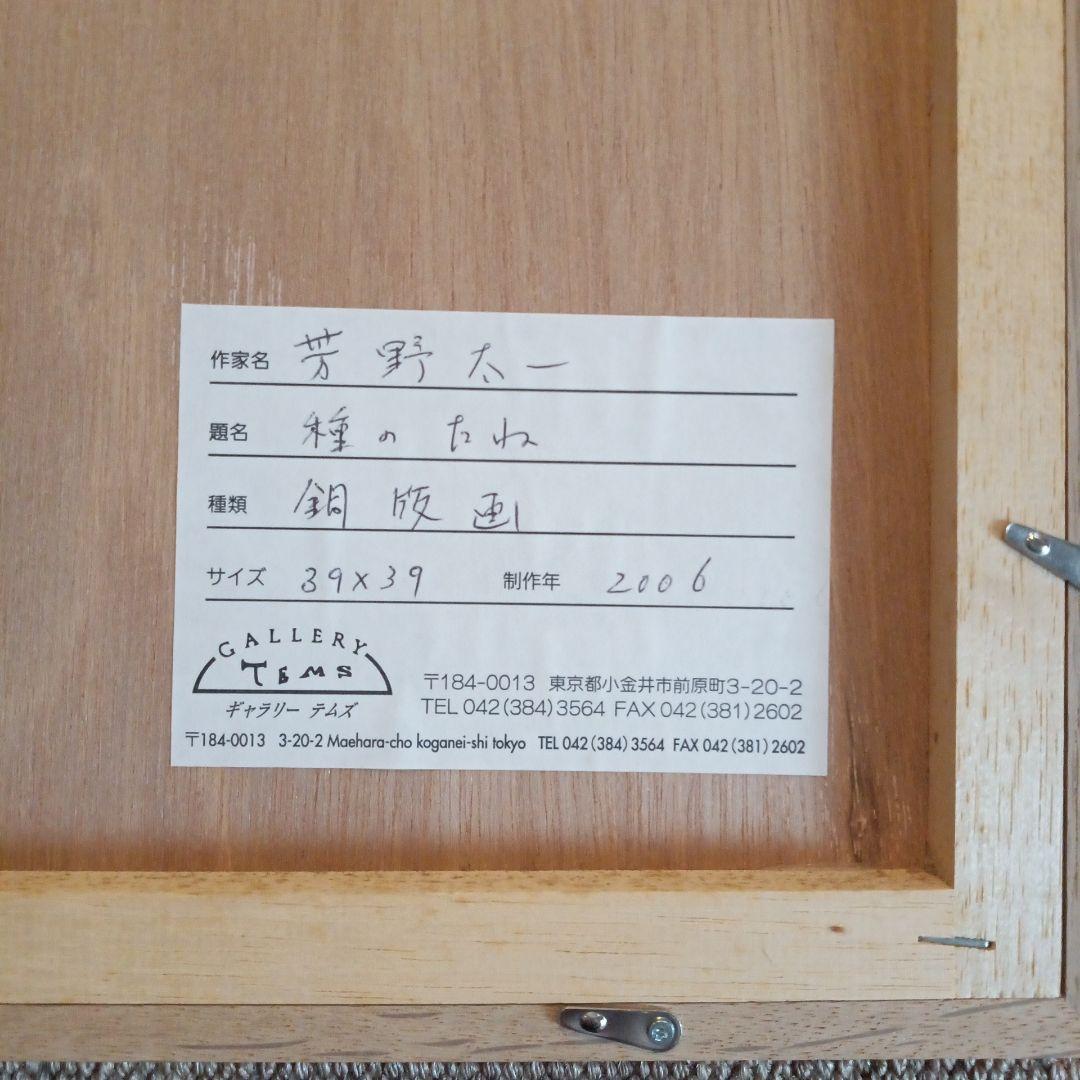 作家名 芳野太一
題名 種のたね
種類 銅版画
サイズ 39×39 制作年 2006
GALLERY
TEMS
ギャラリー テムズ
〒184-0013 東京都小金井市前原町3-20-2
TEL 042(384)3564 FAX 042(381)2602
〒184-0013 3-20-2 Maehara-cho koganei-shi tokyo TEL 042(384)3564 FAX 042(381)2602